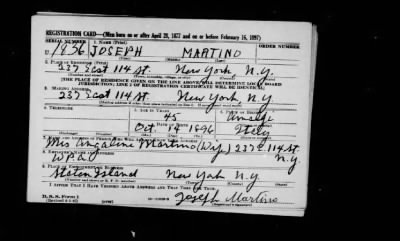 REGISTRATION CARD—(Men born on or after April 28, 1877 and on or before February 16, 1897)
SERIAL NUMBER 1. NAME (Print) ORDER NUMBER
U 1836 JOSEPH MARTINO
(First) (Middle) (Last)
2. PLACE OF RESIDENCE (Print)
237 East 114 St. New York N.Y.
(Number and street) (Town, township, village, or city) (County) (State)
[THE PLACE OF RESIDENCE GIVEN ON THE LINE ABOVE WILL DETERMINE LOCAL BOARD
JURISDICTION; LINE 2 OF REGISTRATION CERTIFICATE WILL BE IDENTICAL]
3. MAILING ADDRESS
237 East 114 St. New York N.Y.
4. TELEPHONE 5. AGE IN YEARS 6. PLACE OF BIRTH
45
DATE OF BIRTH
Oct 14 1896 Italy
Mrs Angaline Martino (Wife) 237 E 114 St.
N.Y.
8. EMPLOYER'S NAME AND ADDRESS
W P A
9. PLACE OF EMPLOYMENT OR BUSINESS
Staten Island New York N.Y.
I AFFIRM THAT I HAVE VERIFIED ABOVE ANSWERS AND THAT THEY ARE TRUE.
D. S. S. Form 1
Joseph Martino